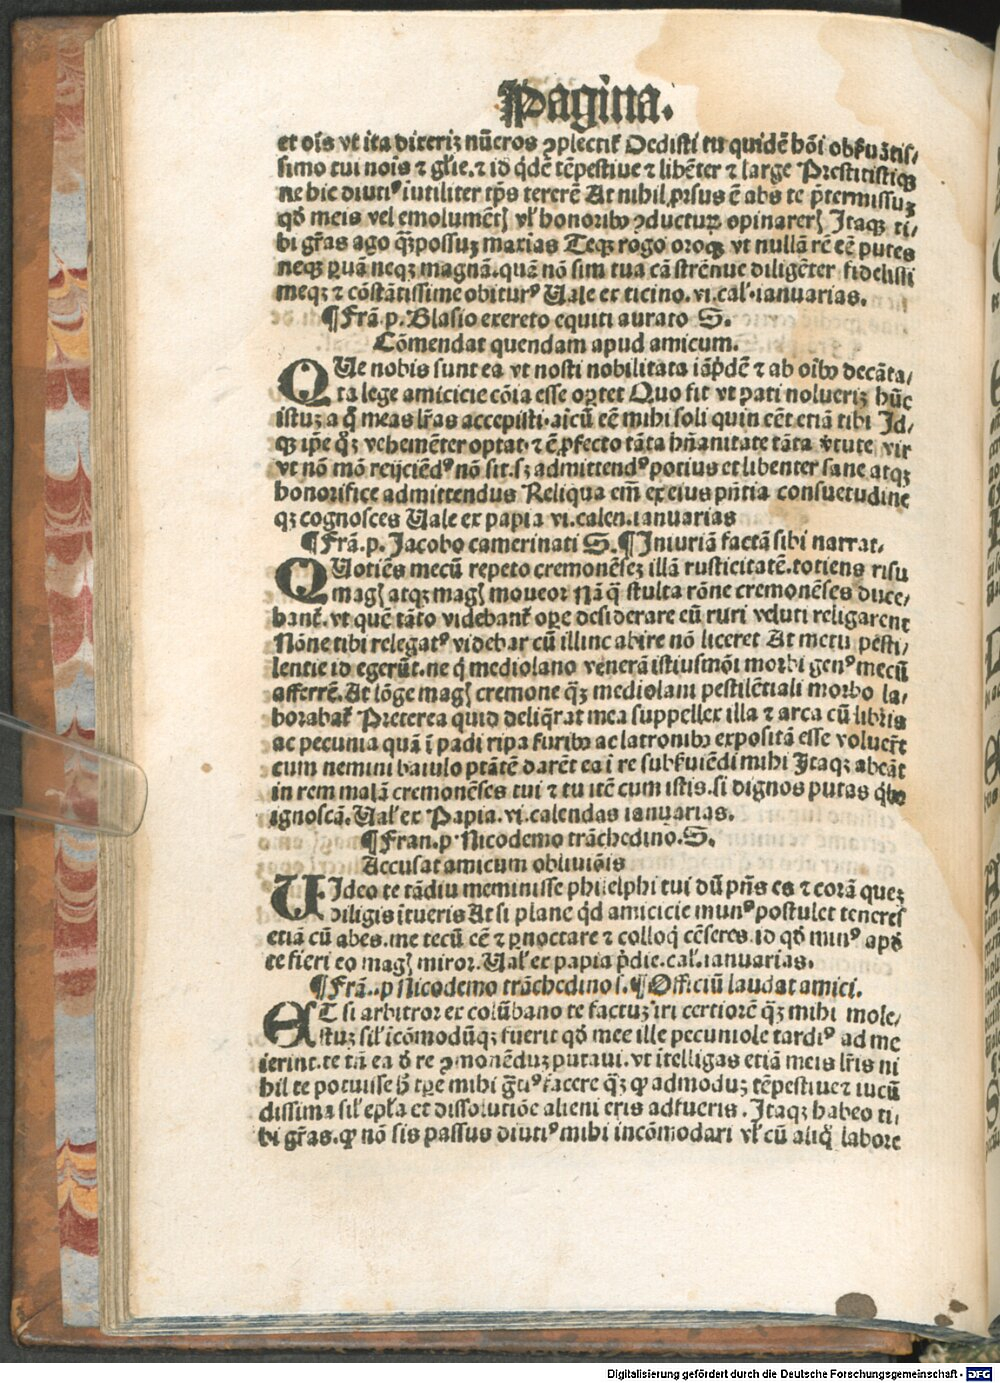 Pagina.
et oīs vt ita dixeriꝫ nūeros ꝯplectiť Dedisti tu quidē hōi obẜuātis/
simo tui noīs ⁊ glīe. ⁊ id qͥdē tēpestiue ⁊ libēter ⁊ large Prestitistiqꝫ
ne hic diutiꝰ iutiliter tꝑs tererē At nihil ꝓrsus ē abs te p̄termissuꝫ
qđ meis vel emolumētꝭ vľ honoribꝰ ꝯducturꝫ opinarerꝭ Itaqꝫ ti/
bi gr̄as ago qꝫ̄possuꝫ maxias Teqꝫ rogo oroqꝫ vt nullā rē eē putes
neqꝫ ꝑuā neqꝫ magnā. quā nō sim tua cā strēnue diligēter fidelisti
meqꝫ ⁊ cōstātissime obiturꝰ Uale ex ticino. vi. cal'. ianuarias.
¶Frā. p. Blasio exereto equiti aurato S.
Cōmendat quendam apud amicum.
QUe nobis sunt ea vt nosti nobilitata iāp̄dē ⁊ ab oībꝰ decāta/
ta lege amicicie cōia esse oꝑtet Quo fit vt pati nolueriꝫ hūc
istuꝫ a q̄ meas lr̄as accepisti. aīcū eē mihi soli quin eēt etiā tibi Id/
qꝫ ip̄e qꝫ̄ vehemēter optat. ⁊ ē ꝓfecto tāta hūanitate tāta v̄tute vir
vt nō mō reijciēdꝰ nō sit. sꝫ admittendꝰ potius et libenter sane atqꝫ
honorifice admittendus Reliqua em̄ ex eius pn̄tia consuetudine
qꝫ cognosces Uale ex papia vi. calen. ianuarias
¶Frā. p. Jacobo camerinati S. ¶Iniuriā factā sibi narrat.
QUotiēs mecū repeto cremonēseꝫ illā rusticitatē. totiens risu
magꝭ atqꝫ magꝭ moueor Nā q̄ stulta rōne cremonēses duce/
banť. vt quē tāto videbanť oꝑe desiderare cū ruri veluti religarent
Nōne tibi relegatꝰ videbar cū illinc abire nō liceret At metu pesti/
lentie id egerūt. ne q̇ mediolano venerā istiusmōi morbi genꝰ mecū
afferrē. At lōge magꝭ cremone qꝫ̄ mediolani pestilētiali morbo la/
borabať Preterea quid deliq̄rat mea suppellex illa ⁊ arca cū libris
ac pecunia quā ī padi ripa furibꝰ ac latronibꝰ expositā esse voluer̄t
cum nemini baiulo ptātē darēt ea ī re subẜuiēdi mihi Itaqꝫ abeāt
in rem malā cremonēses tui ⁊ tu itē cum istis. si dignos putas q̇bꝰ
ignoscā. Ual' ex Papia. vi. calendas ianuarias.
¶Fran. p. Nicodemo trāchedino. S.
Accusat amicum obliuiōis
UIdeo te tādiu meminisse philelphi tui dū pn̄s es ⁊ corā queꝫ
diligis ītueris At si plane qđ amicicie munꝰ postulet teneres
etiā cū abes. me tecū eē ⁊ ꝑnoctare ⁊ colloq̇ cēseres. id qđ minꝰ apđ
te fieri eo magꝭ miror. Ual' ex papia p̄die. cal'. ianuarias.
¶Frā. p Nicodemo trāchedino s. ¶Officiū laudat amici.
ET si arbitror ex colūbano te factuꝫ iri certiorē qꝫ̄ mihi mole/
stuꝫ sil' icōmodūqꝫ fuerit qđ mee ille pecuniole tardiꝰ ad me
ierint. te tn̄ ea đ re ꝯmonēduꝫ putaui. vt ītelligas etiā meis lr̄is ni
hil te potuisse h̄ tꝑe mihi gr̄tiꝰ facere qꝫ̄ ꝙ admoduꝫ tēpestiue ⁊ iucū
dissima sil' ep̄ła et dissolutiōe alieni eris adfueris. Itaqꝫ habeo ti/
bi gr̄as. ꝙ nō sis passus diutiꝰ mihi incōmodari vľ cū aliq̄ labore
Digitalisierung gefördert durch die Deutsche Forschungsgemeinschaft - DFG